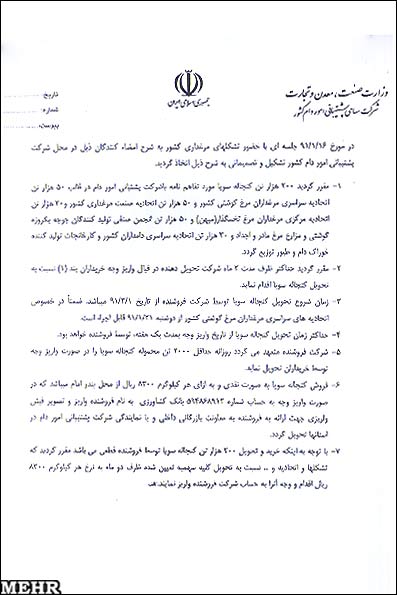 جمهوری اسلامی ایران
وزارت صنعت، معدن و تجارت
شرکت سهامی پشتیبانی امور دام کشور
تاریخ:
شماره:
پیوست:
در مورخ ۹۱/۱/۱۶ جلسه ای با حضور تشکلهای مرغداری کشور به شرح امضاء کنندگان ذیل در محل شرکت
پشتیبانی امور دام کشور تشکیل و تصمیماتی به شرح ذیل اتخاذ گردید.
۱- مقرر گردید ۲۰۰ هزار تن کنجاله سویا مورد تفاهم نامه باشرکت پشتیبانی امور دام در قالب ۵۰ هزار تن
اتحادیه سراسری مرغداران مرغ گوشتی کشور و ۵۰ هزار تن اتحادیه صنعت مرغداری کشور و ۲۰ هزار تن
اتحادیه مرکزی مرغداران مرغ تخمگذار(میهن) و ۵۰ هزار تن انجمن صنفی تولید کنندگان جوجه یکروزه
گوشتی و مزارع مرغ مادر و اجداد و ۳۰ هزار تن اتحادیه سراسری دامداران کشور و کارخانجات تولید کننده
خوراک دام و طیور توزیع گردد.
۲- مقرر گردید حداکثر ظرف مدت ۲ ماه شرکت تحویل دهنده در قبال واریز وجه خریداران بند (۱) نسبت به
تحویل کنجاله سویا اقدام نماید.
۳- زمان شروع تحویل کنجاله سویا توسط شرکت فروشنده از تاریخ ۹۱/۲/۱ میباشد. ضمناً در خصوص
اتحادیه های سراسری مرغداران مرغ گوشتی کشور از دوشنبه ۹۱/۱/۲۱ قابل اجراء است.
۴- حداکثر زمان تحویل کنجاله سویا از تاریخ واریز وجه بمدت یک هفته، توسط فروشنده خواهد بود.
۵- شرکت فروشنده متعهد می گردد روزانه حداقل ۲۰۰۰ تن محموله کنجاله سویا را در صورت واریز وجه
توسط خریداران تحویل نماید.
۶- فروش کنجاله سویا به صورت نقدی و به ازای هر کیلوگرم ۸۳۰۰ ریال از محل بندر امام میباشد که در
صورت واریز وجه به حساب شماره ۵۱۴۸۶۸۹۱۳ بانک کشاورزی به نام فروشنده واریز و تصویر فیش
واریزی جهت ارائه به فروشنده به معاونت بازرگانی داخلی و یا نمایندگی شرکت پشتیبانی امور دام در
استانها تحویل گردد.
۷- با توجه به اینکه خرید و تحویل ۲۰۰ هزار تن کنجاله سویا توسط فروشنده قطعی می باشد مقرر گردید که
تشکلها و اتحادیه و .. نسبت به تحویل کلیه سهمیه تعیین شده ظرف دو ماه به نرخ هر کیلوگرم ۸۳۰۰
ریال اقدام و وجه آنرا به حساب شرکت فروشنده واریز نمایند.
MEHR